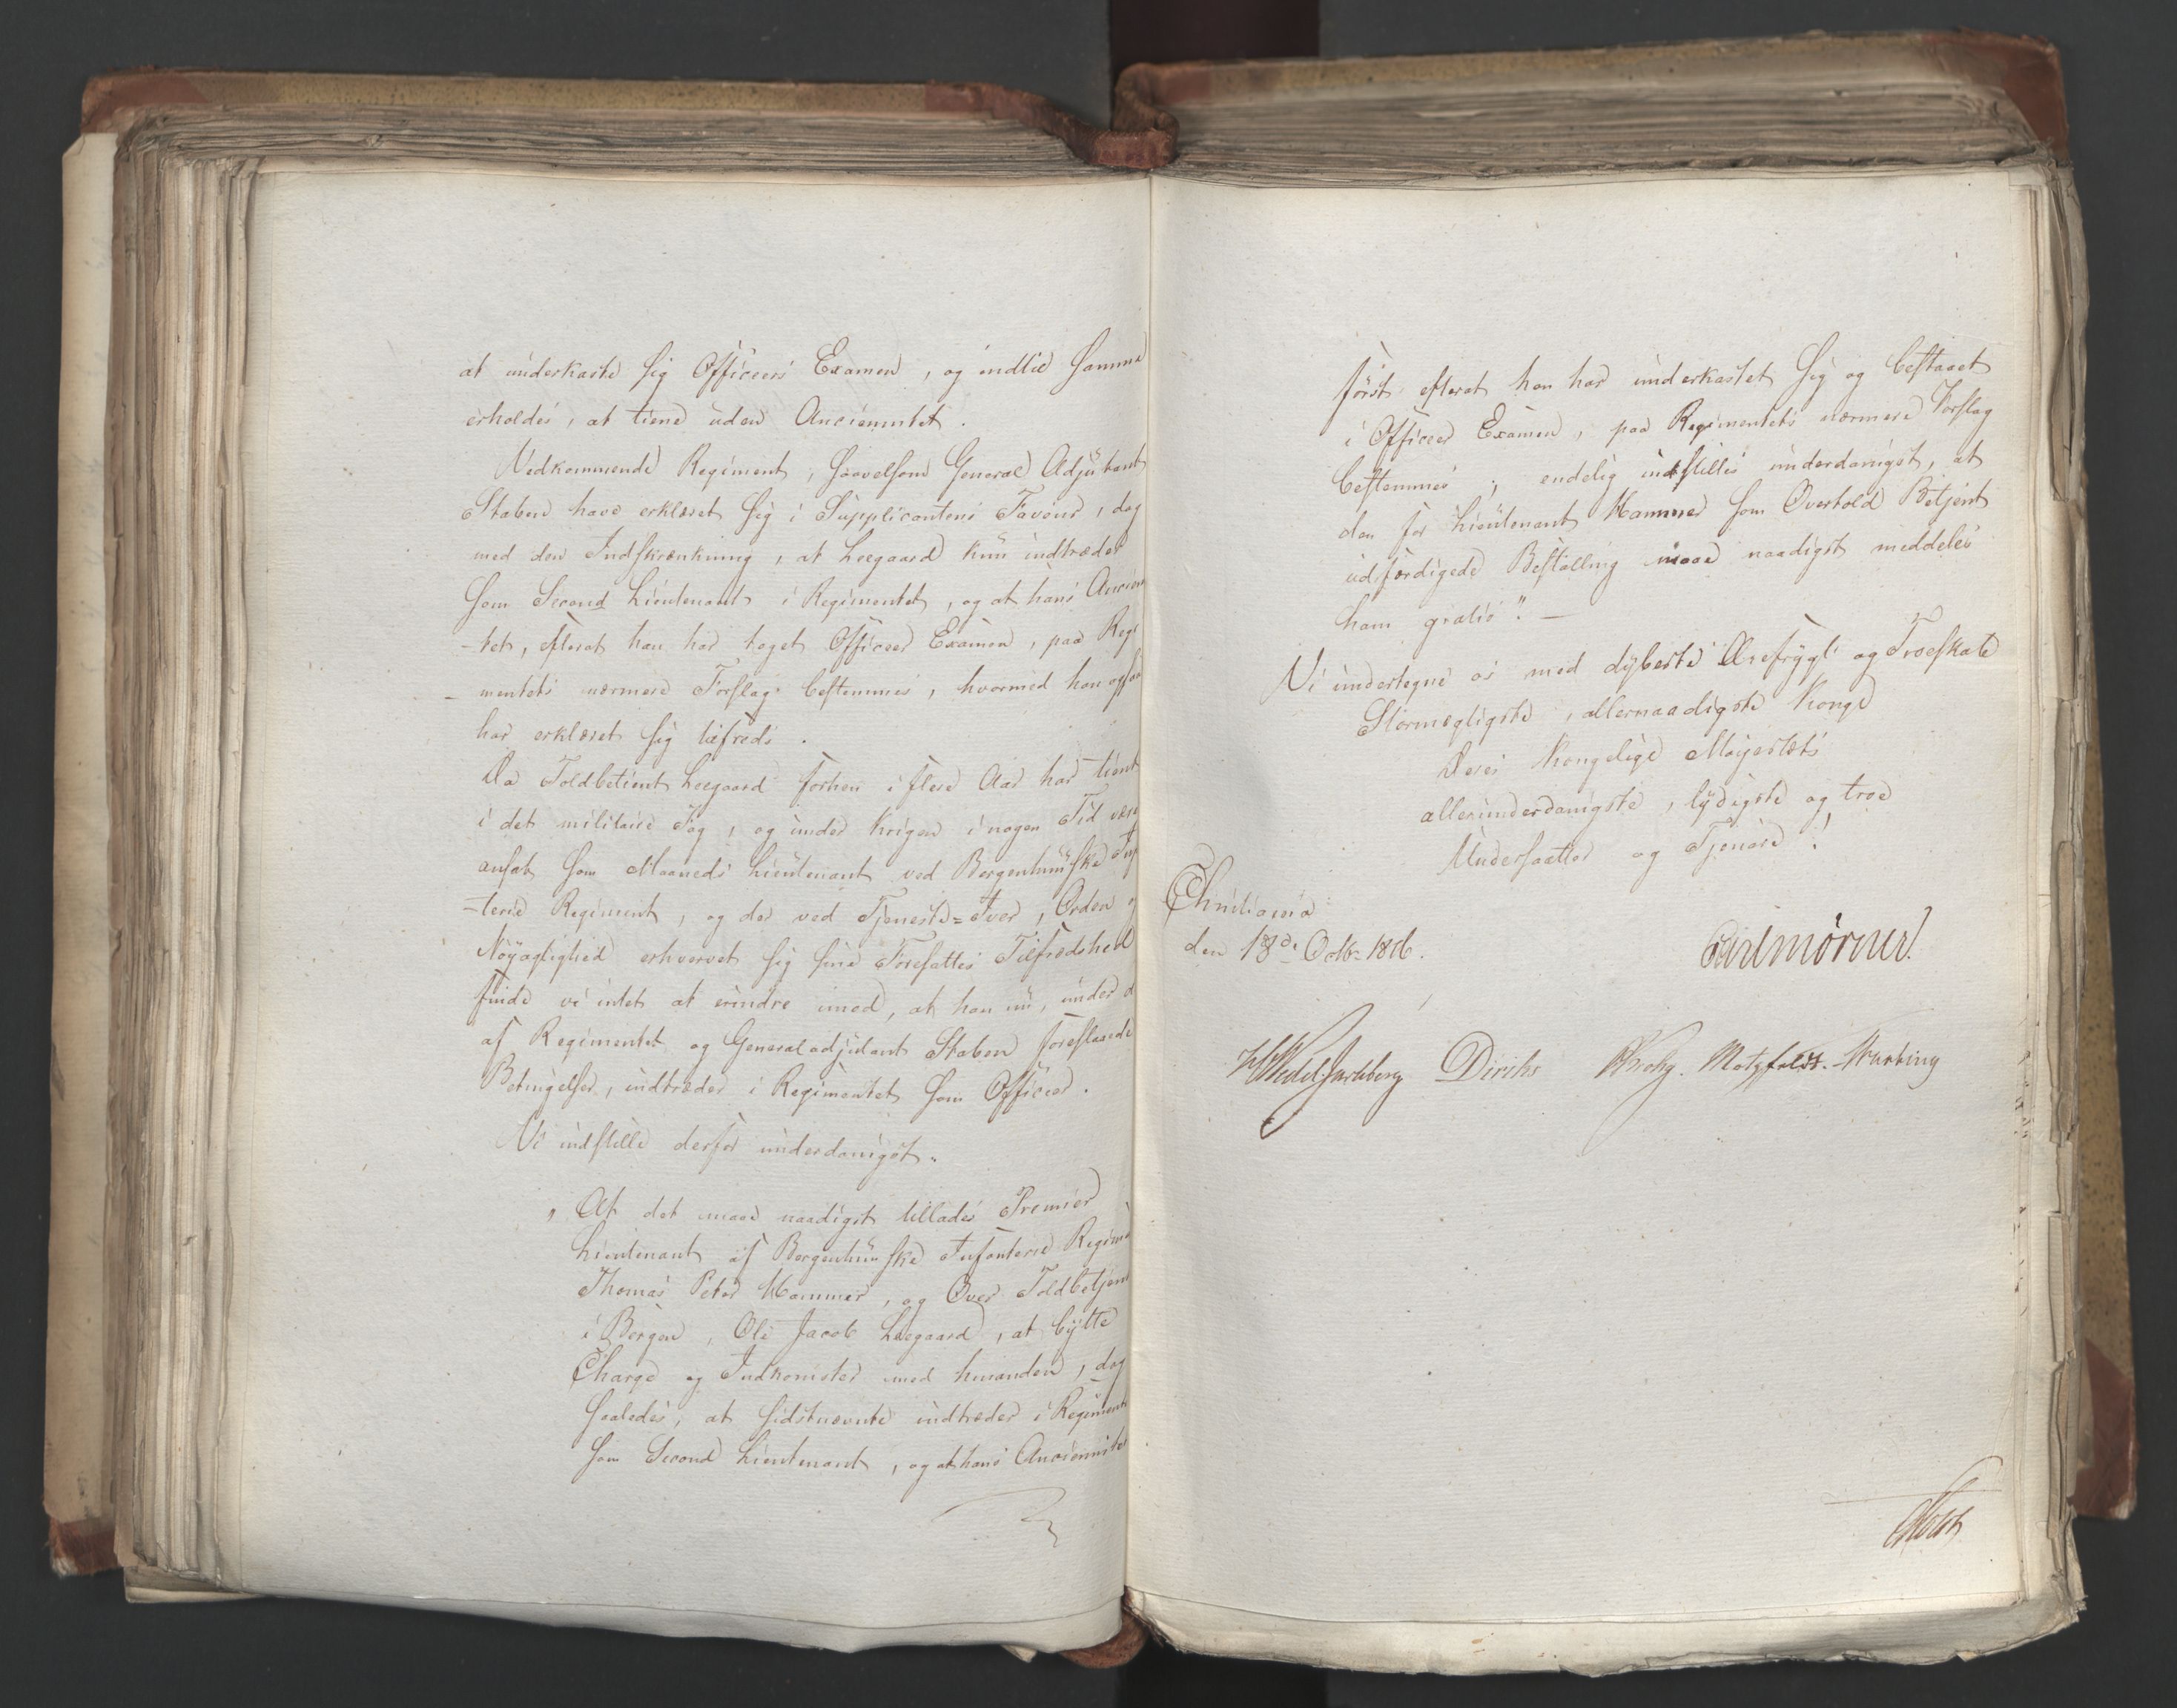 at underkaste sig Officeers Examen, og indtil samme
erholdes, at tiene uden Anciennitet.
Vedkommende Regiment, saavelsom General Adjutant
Staben have erklæret sig i Supplicantens Faveur, dog
med den Indskrænkning, at Leegaard kun indtræder
som Second Lieutenant i Regimentet, og at hans Ancien
-tet, efterat han har taget Officeer Examen, paa Regi
-mentets nærmere Forslag bestemmes, hvormed han ogsaa
har erklæret sig tilfreds.
Da Toldbetient Leegaard forhen i flere Aar har tient
i det militaire Fag, og under Krigen i nogen Tid være
ansat som Maaneds Lieutenant ved Bergenhuusske Inf
-terie Regiment, og der ved Tjeneste=Iver, Orden o
Nøyagtighed erhvervet sig sine Foresattes Tilfredshed
finde vi intet at erindre imod, at han nu, under d
af Regimentet og Generaladjutant Staben foreslaaede
Betingelser, indtræder i Regimentet som Officeer.
Vi indstille derfor underdanigst.
„At det maae naadigst tillades Premier
Lieutenant af Bergenhuusske Infanterie Regime
Thomas Peter Hammer, og Over Toldbetjent
i Bergen, Ole Jacob Leegaard, at bytte
Charge og Indkomster med hinanden, dog
saaledes, at sidstnævnte indtræder i Regiment
som Second Lieutenant, og at hans Anciennitet
først efterat han har underkastet sig og bestaaet
i Officeer Examen, paa Regimentets nærmere Forslag
bestemmes; endelig indstilles underdanigst, at
den for Lieutenant Hammer som Overtold Betjent
udfærdigede Bestalling maae naadigst meddeles
ham gratis." —
Vi undertegne os med dybeste Ærefrygt og Troeskab
Stormægtigste, allernaadigste Konge
Deres Kongelige Mayestæts
allerunderdanigste, lydigste og troe
Undersaatter og Tjenere!
Christiania
den 18de Octb: 1816.
Carl Mörner.
HWedel Jarlsberg Diriks Krohg. Motzfeldt. Hvorling
Holst